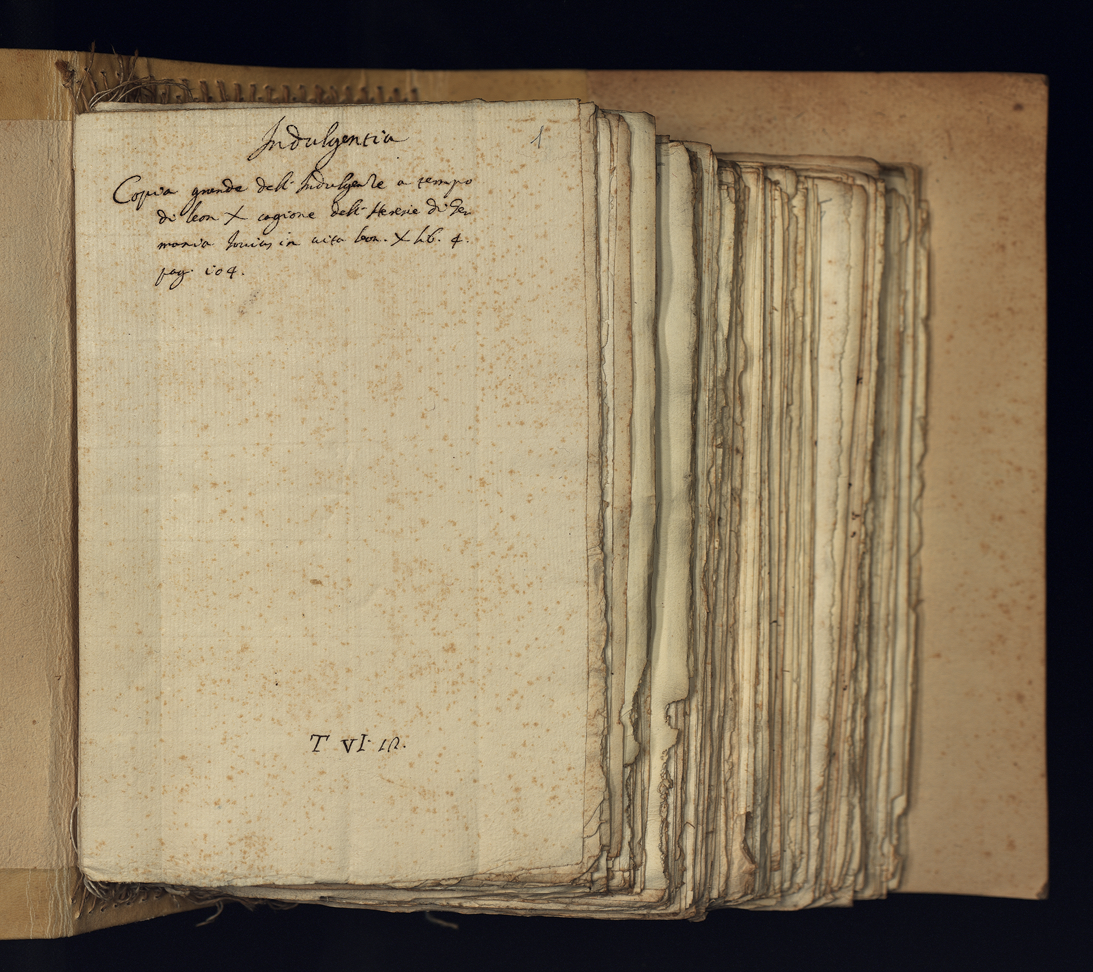 Indulgentia
1
Copia grande dell' Indulgenze a tempo
di leon X cagione dell' Heresie di Ger
mania Jovius in vita leon. X lib. 4.
pag. 104.
T VI.